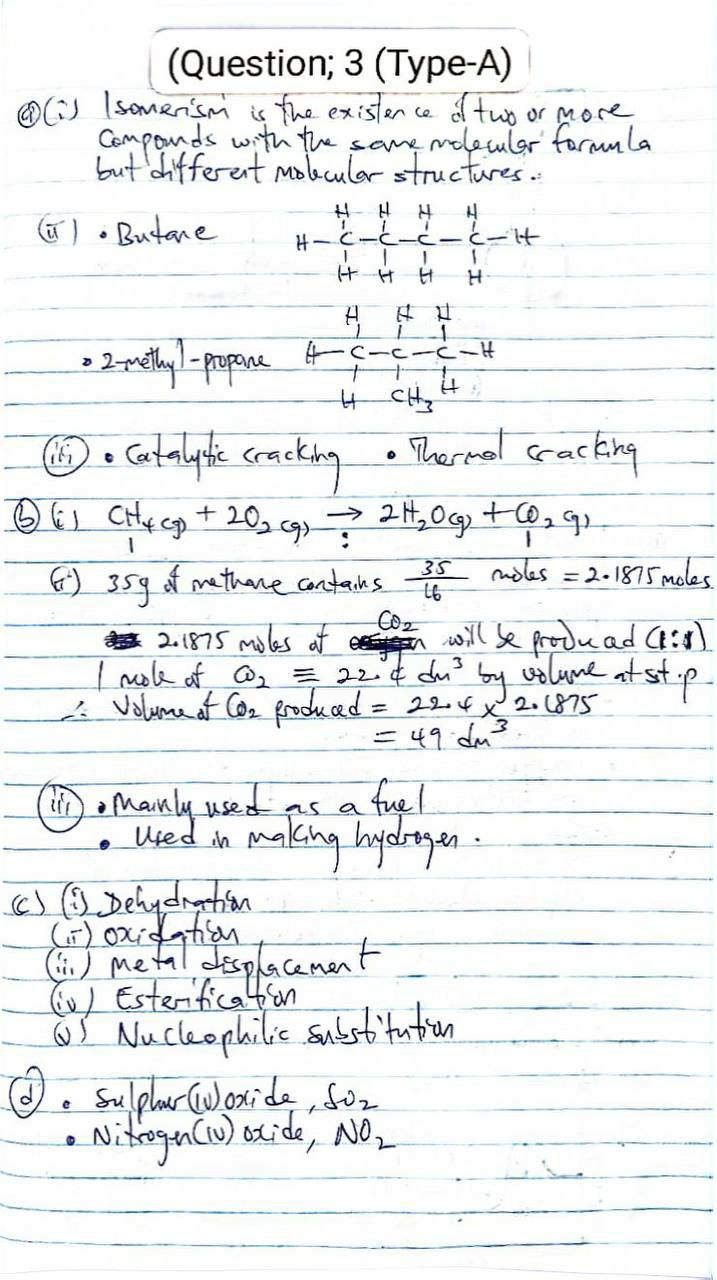 (Question; 3 (Type-A)
(a)(i) Isomerism is the existence of two or more
compounds with the same molecular formula
but different molecular structures.
(ii) • Butane
H H H H
H-C-C-C-C-H
H H H H
H H H
• 2-methyl-propane H-C-C-C-H
H CH3 H
(iii) • Catalytic cracking • Thermal cracking
(b) (i) CH4(g) + 2O2(g) → 2H2O(g) + CO2(g)
1 : 1
(ii) 35g of methane contains 35/16 moles = 2.1875 moles
2.1875 moles of CO2 will be produced (1:1)
1 mole of CO2 ≡ 22.4 dm³ by volume at s.t.p
∴ Volume of CO2 produced = 22.4 x 2.1875
= 49 dm³
(iii) • Mainly used as a fuel
• Used in making hydrogen.
(c) (i) Dehydration
(ii) Oxidation
(iii) Metal displacement
(iv) Esterification
(v) Nucleophilic substitution
(d) • Sulphur(iv)oxide, SO2
• Nitrogen(iv) oxide, NO2